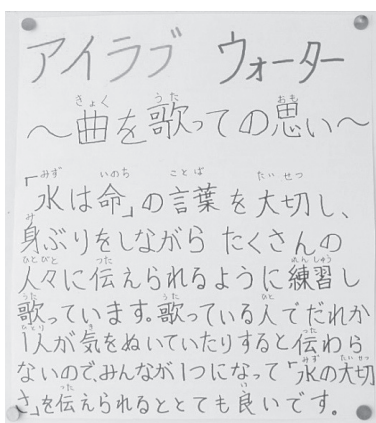 アイラブ ウォーター
～曲を歌っての思い～
「水は命」の言葉を大切し、
身ぶりをしながら たくさんの
人々に伝えられるように練習し
歌っています。歌っている人でだれか
1人が気をぬいていたりすると伝わら
ないので、みんなが1つになって「水の大切
さ」を伝えられるととても良いです。